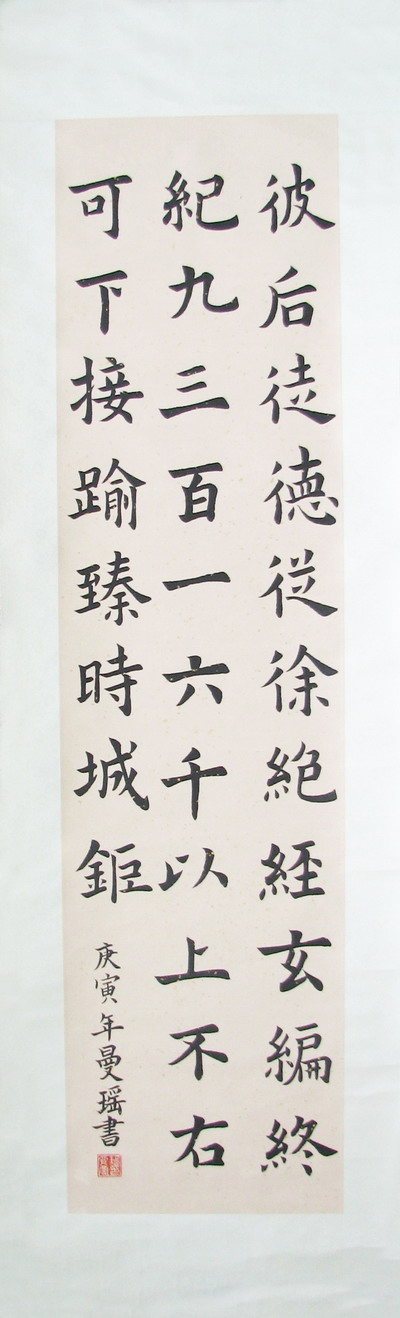 彼后徒德従徐絶経玄編終
紀九三百一六千以上不右
可下接踰臻時城鉅
庚寅年曼瑶書